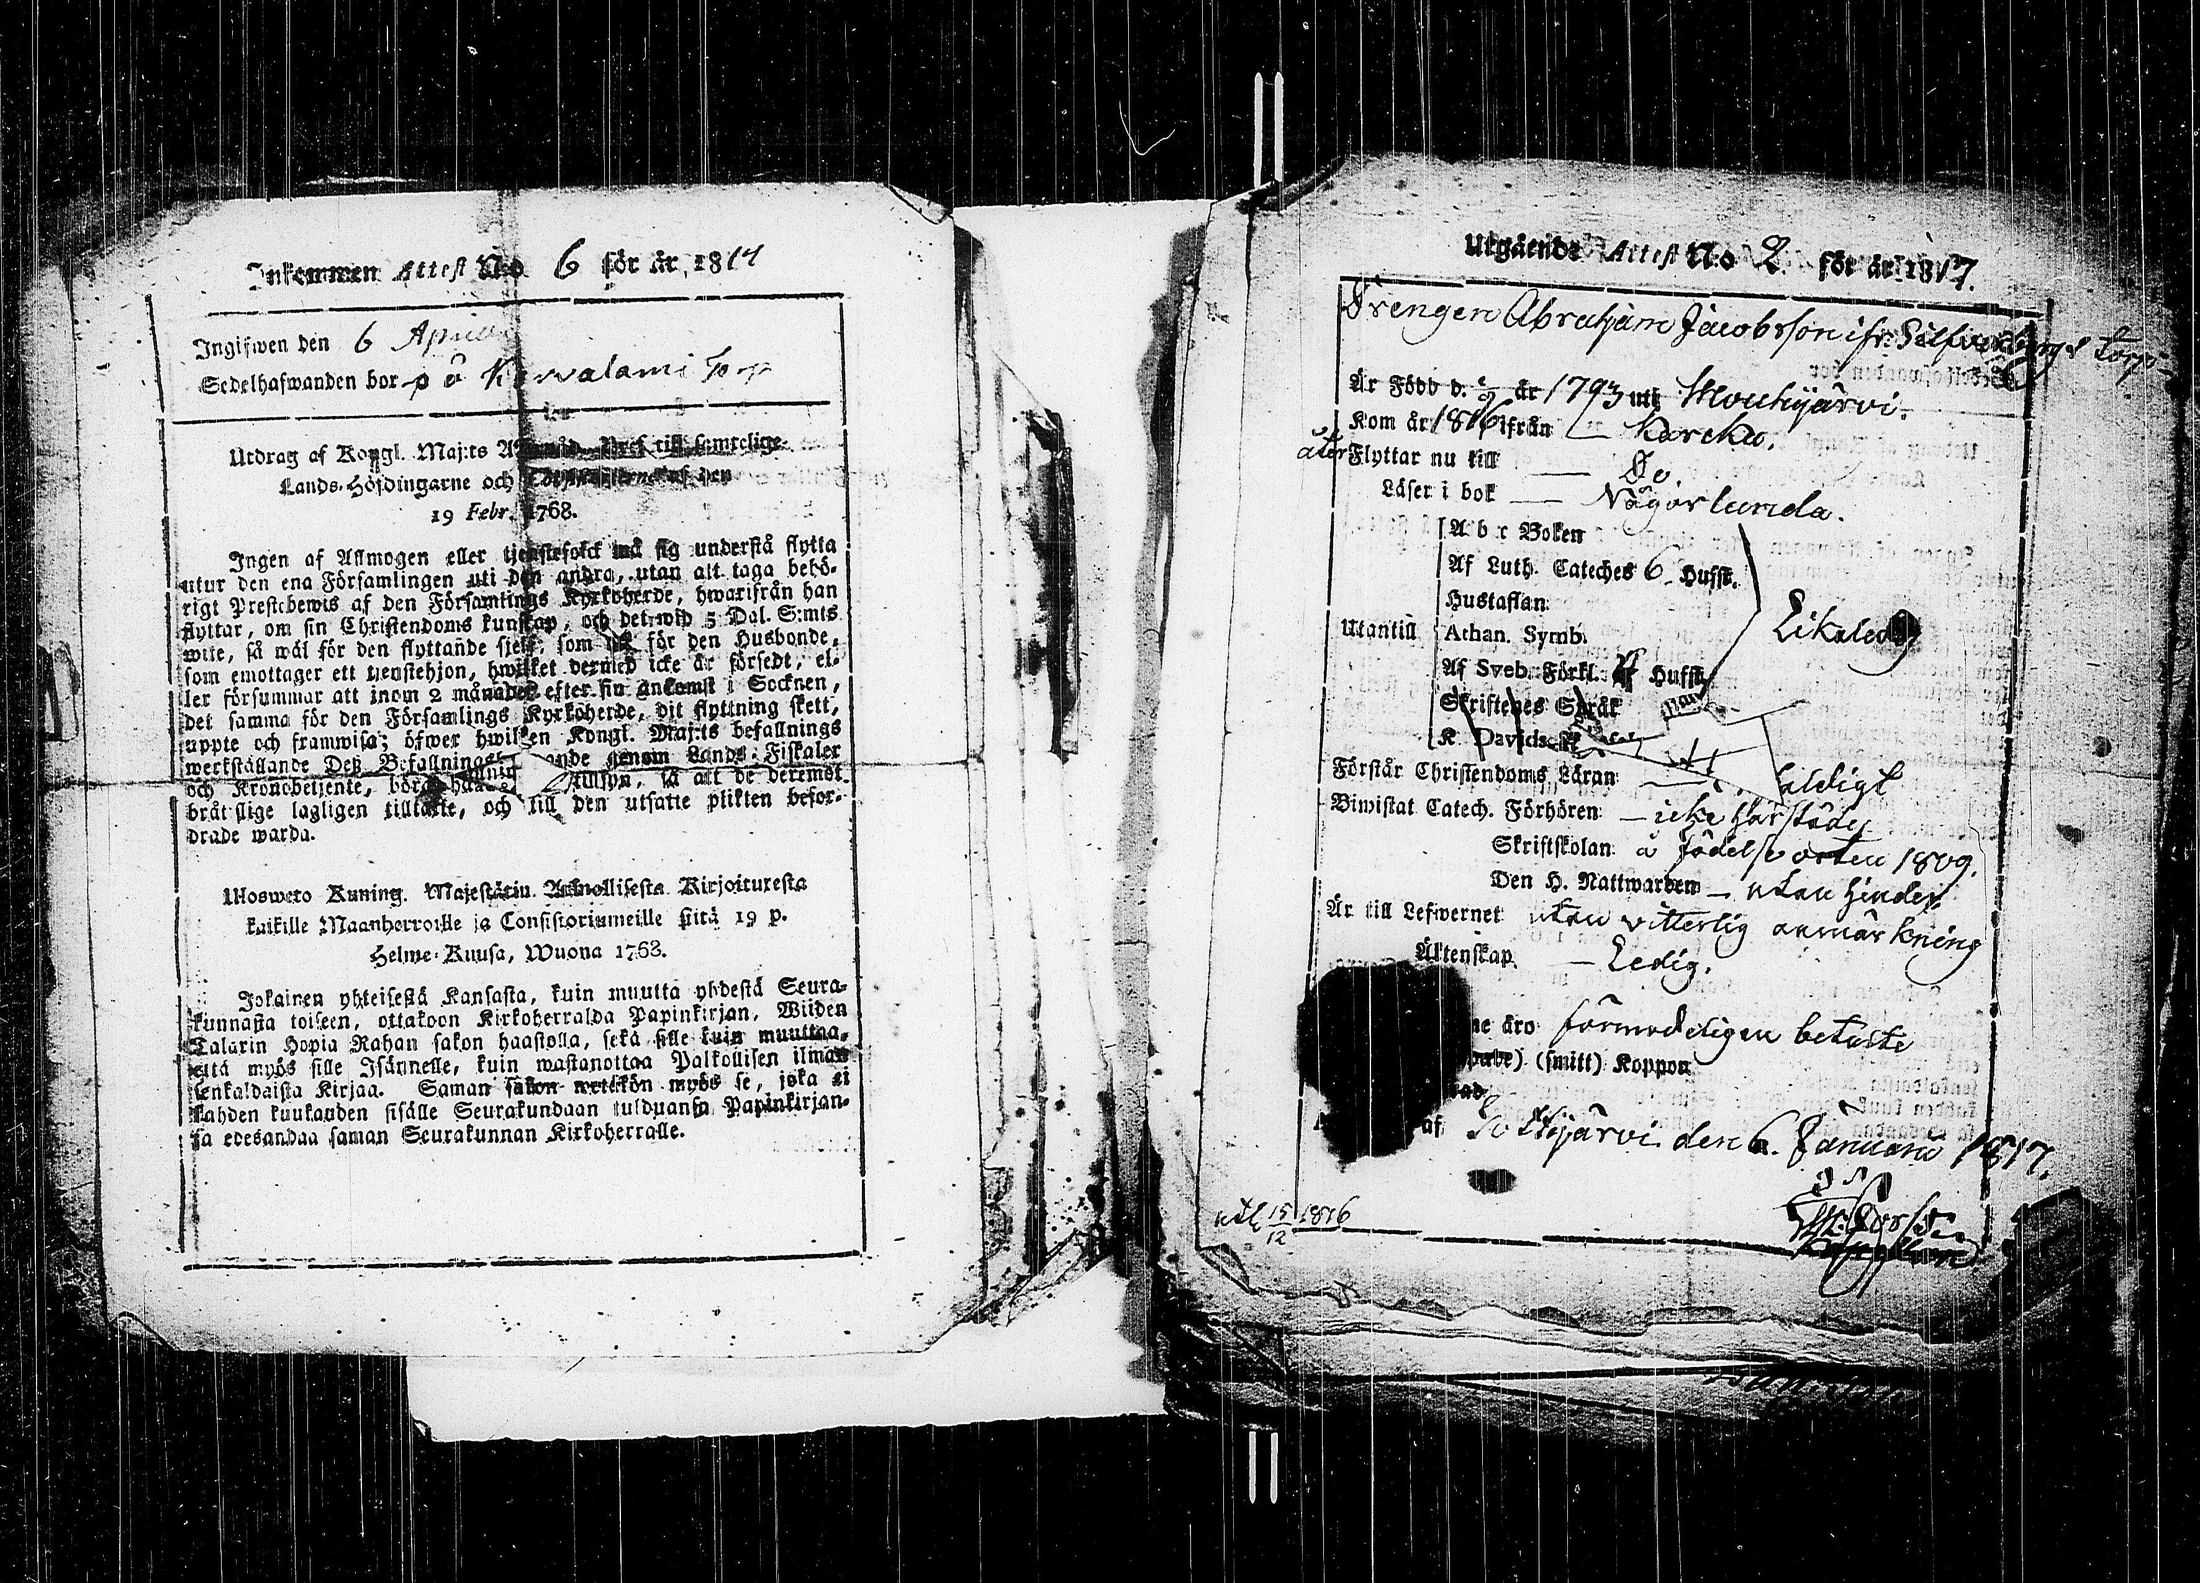 Inkommen Attest No 6 för år 1817
Ingifwen den 6 April
Sedelhafwanden bor på
Utdrag af Kongl. Maj:ts till samtelige
Lands-Höfdingarne och af den
19 Febr. 1768.
Ingen af Allmogen eller tjenstefolck må sig understå flytta
utur den ena Församlingen uti den andra, utan att taga behö-
rigt Prestebewis af den Församlings Kyrkoherde, hwarifrån han
flyttar, om sin Christendoms kunskap, och det wid 5 Dal. S:mts
wite, så wäl för den flyttande sjelf, som för den Husbonde,
som emottager ett tienstehjon, hwilket dermed icke är försedt, el-
ler försummar att inom 2 månader efter sin ankomst i Socknen,
det samma för den Församlings Kyrkoherde, dit flyttning skett,
uppte och framwisa; öfwer hwilken Kongl. Maj:ts befallnings
werkställande Deß Befallnings genom Lands-Fiskaler
och Kronobetjente, böra tillsyn, så att de deremot
brått slige lagligen tilltalte, och till den utsatte plikten befor-
drade warda.
Ulosweto Kuning. Majestätin Armollisesta Kirjoituxesta
kaikille Maanherroille ja Consistoriumeille siitä 19 p.
Helme-Kuusa, Wuona 1768.
Jokainen yhteisestä Kansasta, kuin muutta yhdestä Seura-
kunnasta toiseen, ottakoon Kirkoherralda Papinkirjan, Wiiden
Talarin Hopia Rahan sakon haastolla, sekä sille kuin muuttaa,
että myös sille Isännelle, kuin wastanottaa Palkollisen ilman
senkaldaista Kirjaa. Saman sakon wetäkön myös se, joka ei
kahden kuukauden sisälle Seurakundaan tulduansa Papinkirjan-
sa edesandaa saman Seurakunnan Kirkoherralle.
Utgående Attest No 2 för år 1817.
Drengen Abraham Jacobsson ifr. Silfversbergs torp
Är Född d. år 1793 uti Mouhijärvi.
Kom år 1816 ifrån — Karcku.
åter Flyttar nu till — Do
Läser i bok — Någorlunda.
A b c Boken
Af Luth. Cateches 6 Hufst.
Hustaflan
Utantill Athan. Symb. Likaledes
Af Sveb. Förkl. Hufst.
Skriftenes Språk
K. Davids
Förstår Christendoms Läran
Biwistat Catech. Förhören — icke härstädes
Skriftskolan å födelseorten 1809.
Den H. Nattwarden — utan hinder.
Är till Lefwernet utan vitterlig anmärkning
Äktenskap — Ledig.
äro förmodeligen betaste
(smitt) Koppor
af Sottkjärvi den 6. Januarii 1817.
utl. 15/12 1816